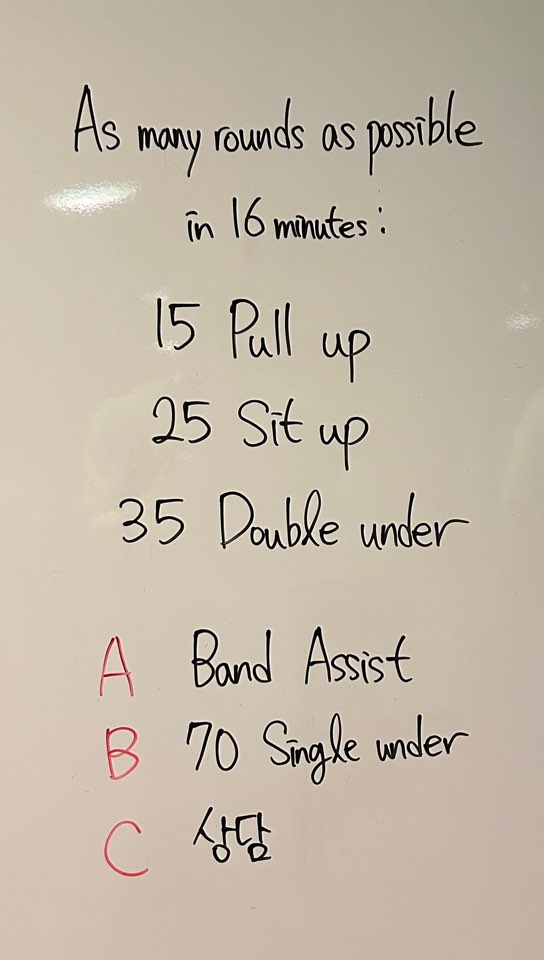 As many rounds as possible
in 16 minutes:
15 Pull up
25 Sit up
35 Double under
A Band Assist
B 70 Single under
C 상담